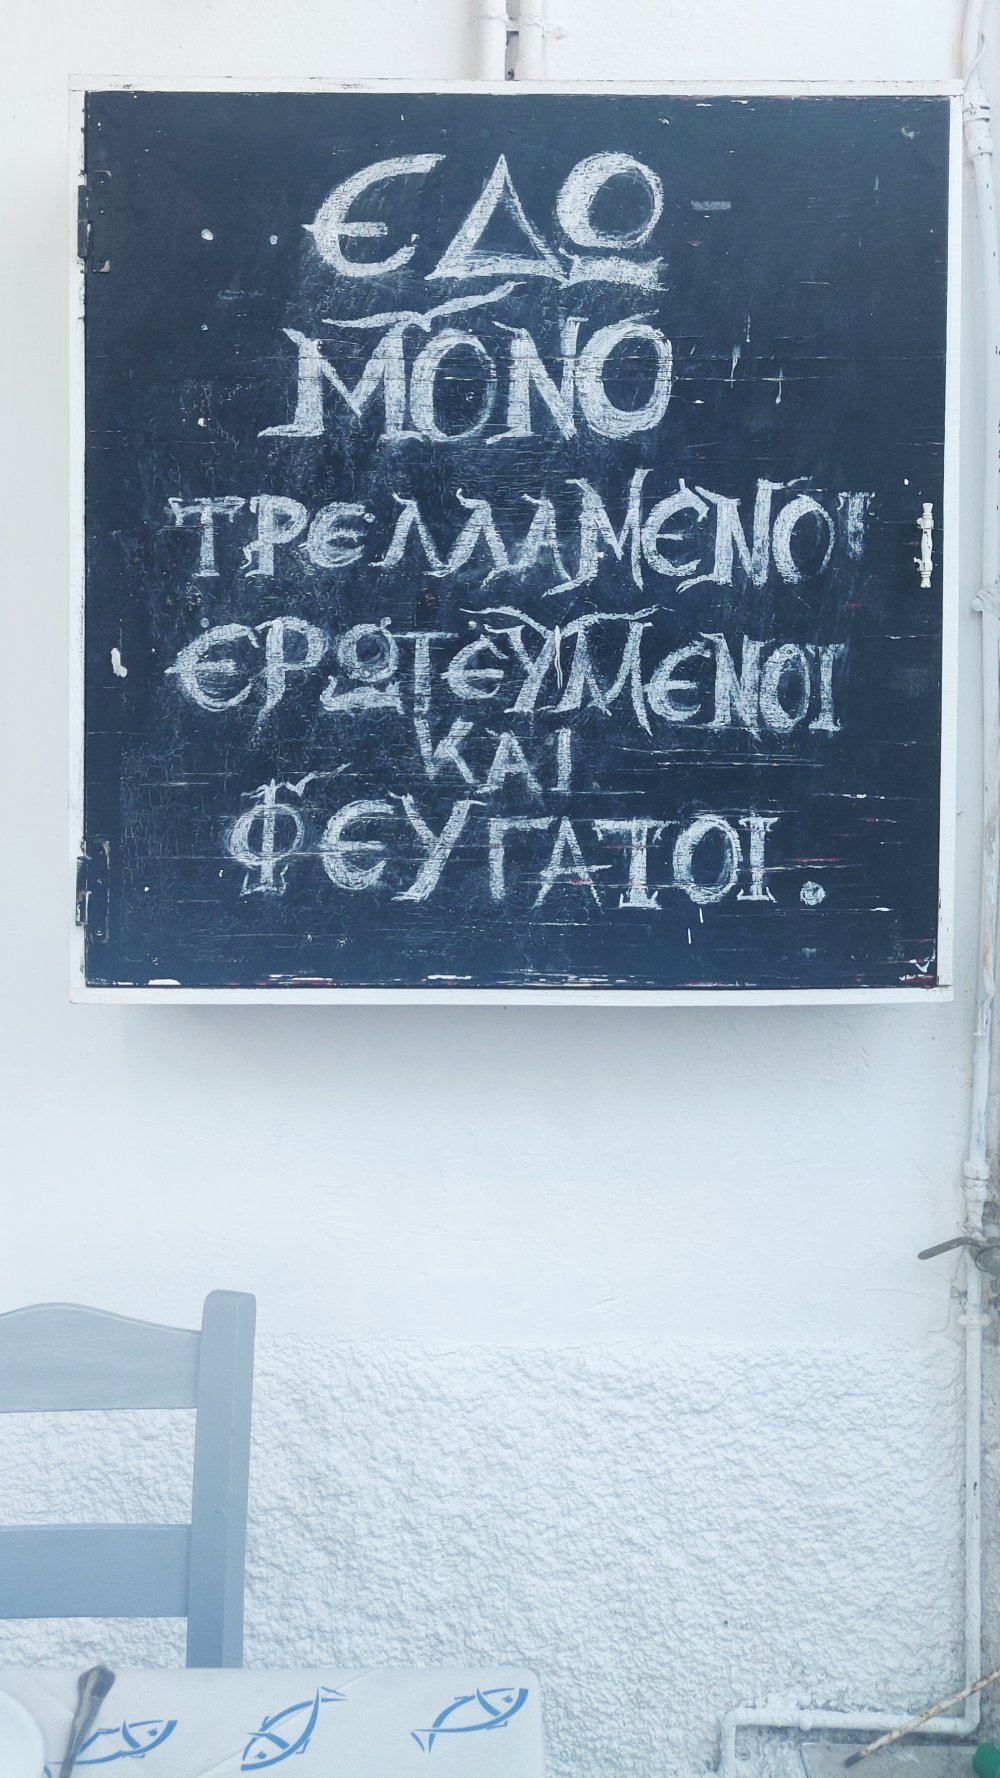 ΕΔΩ
ΜΟΝΟ
ΤΡΕΛΛΑΜΕΝΟΙ
ΕΡΩΤΕΥΜΕΝΟΙ
ΚΑΙ
ΦΕΥΓΑΤΟΙ.